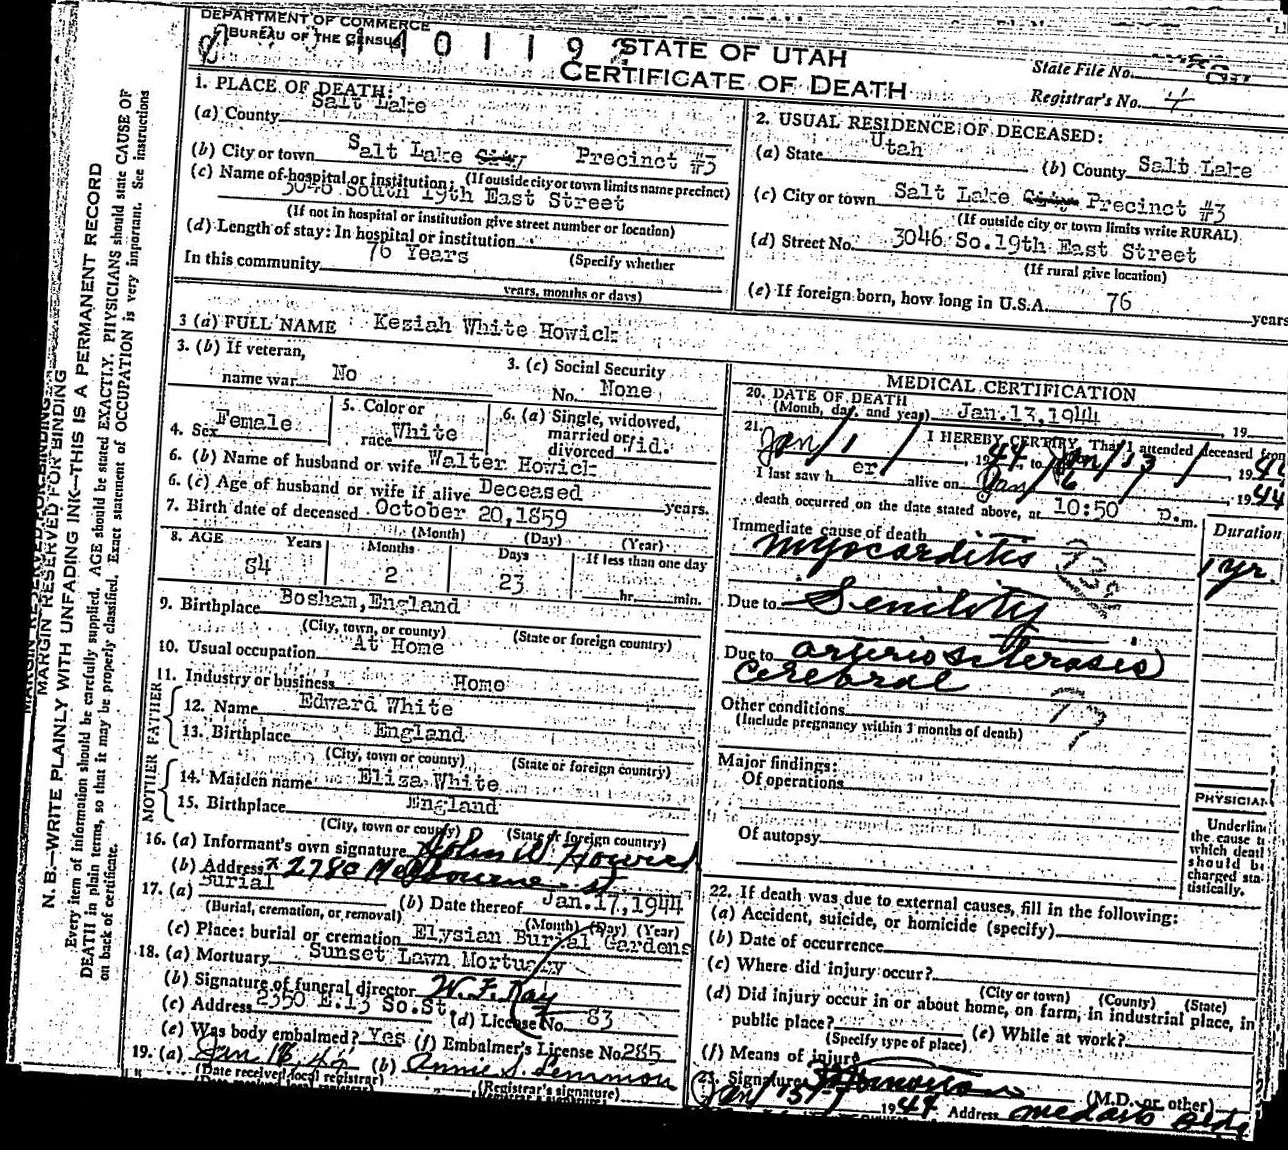 DEPARTMENT OF COMMERCE
BUREAU OF THE CENSUS
STATE OF UTAH
CERTIFICATE OF DEATH
State File No.
Registrar's No. 4
1. PLACE OF DEATH:
(a) County Salt Lake
(b) City or town Salt Lake City Precinct #3
(If outside city or town limits name precinct)
(c) Name of hospital or institution:
3046 South 19th East Street
(If not in hospital or institution give street number or location)
(d) Length of stay: In hospital or institution
In this community 76 Years (Specify whether
years, months or days)
2. USUAL RESIDENCE OF DECEASED:
(a) State Utah (b) County Salt Lake
(c) City or town Salt Lake City Precinct #3
(If outside city or town limits write RURAL)
(d) Street No. 3046 So. 19th East Street
(If rural give location)
(e) If foreign born, how long in U.S.A. 76 years
3 (a) FULL NAME Keziah White Howick
3. (b) If veteran,
name war No
3. (c) Social Security
No. None
4. Sex Female
5. Color or
race White
6. (a) Single, widowed,
married or
divorced Wid.
6. (b) Name of husband or wife Walter Howick
6. (c) Age of husband or wife if alive Deceased years.
7. Birth date of deceased October 20, 1859
(Month) (Day) (Year)
8. AGE Years Months Days If less than one day
84 2 23 hr. min.
9. Birthplace Bosham, England
(City, town, or county) (State or foreign country)
10. Usual occupation At Home
11. Industry or business Home
FATHER
12. Name Edward White
13. Birthplace England
(City, town or county) (State or foreign country)
MOTHER
14. Maiden name Eliza White
15. Birthplace England
(City, town or county) (State or foreign country)
16. (a) Informant's own signature John W Howick
(b) Address 2780 Melbourne St
17. (a) Burial (b) Date thereof Jan. 17, 1944
(Burial, cremation, or removal) (Month) (Day) (Year)
(c) Place: burial or cremation Elysian Burial Gardens
18. (a) Mortuary Sunset Lawn Mortuary
(b) Signature of funeral director W. F. Ray
(c) Address 2350 E. 13 So. St. (d) License No. 83
(e) Was body embalmed? Yes (f) Embalmer's License No. 285
19. (a) Jan (b) Annie S. Lemmon
(Date received local registrar) (Registrar's signature)
MEDICAL CERTIFICATION
20. DATE OF DEATH
(Month, day, and year) Jan. 13, 1944, 19
21. I HEREBY CERTIFY, That I attended deceased from
Jan / 1 /, 1944 to Jan / 13 /, 1944
I last saw her alive on Jan / 1944
death occurred on the date stated above, at 10:50 P.m.
Immediate cause of death Duration
myocarditis 1 yr.
Due to Senility
Due to arteriosclerosis
Cerebral
Other conditions
(Include pregnancy within 3 months of death)
Major findings:
Of operations
Of autopsy
PHYSICIAN
Underline
the cause to
which death
should be
charged sta-
tistically.
22. If death was due to external causes, fill in the following:
(a) Accident, suicide, or homicide (specify)
(b) Date of occurrence
(c) Where did injury occur?
(City or town) (County) (State)
(d) Did injury occur in or about home, on farm, in industrial place, in
public place? (e) While at work?
(Specify type of place)
(f) Means of injury
23. Signature (M.D. or other)
1944 Address
MARGIN RESERVED FOR BINDING
N. B.—WRITE PLAINLY WITH UNFADING INK—THIS IS A PERMANENT RECORD
Every item of information should be carefully supplied. AGE should be stated EXACTLY. PHYSICIANS should state CAUSE OF
DEATH in plain terms, so that it may be properly classified. Exact statement of OCCUPATION is very important. See instructions
on back of certificate.